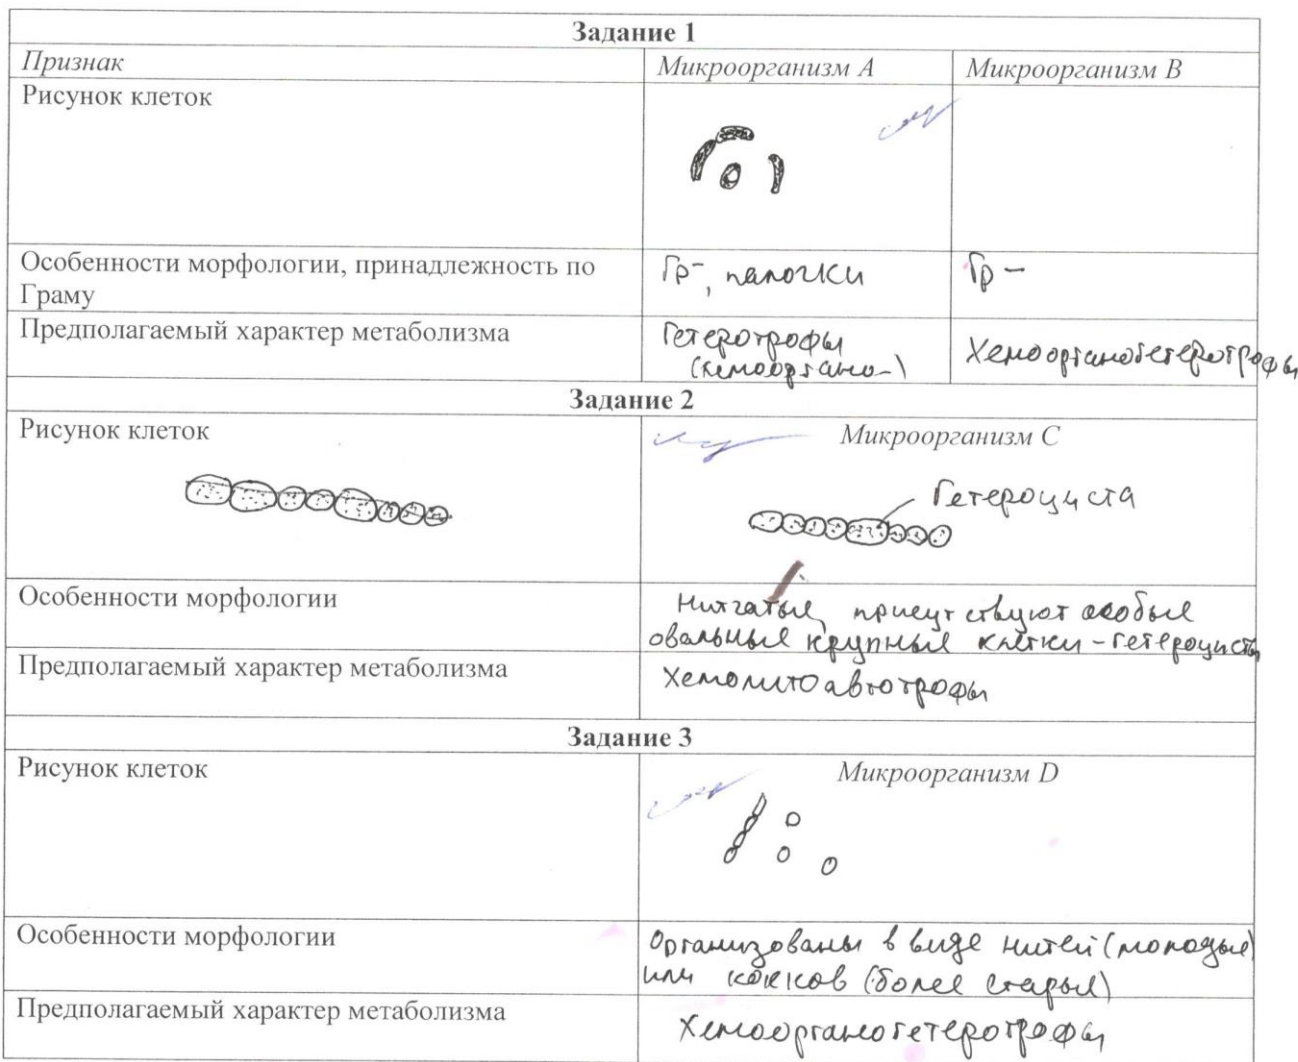 Задание 1
Признак Микроорганизм А Микроорганизм В
Рисунок клеток
Особенности морфологии, принадлежность по Граму
Гр-, палочки
Гр -
Предполагаемый характер метаболизма
Гетеротрофы
(хемооргано-)
Хемоорганогетеротрофы
Задание 2
Рисунок клеток
Микроорганизм С
Гетероциста
Особенности морфологии
Нитчатые, присутствуют особые
овальные крупные клетки-гетероцисты
Предполагаемый характер метаболизма
Хемолитоавтотрофы
Задание 3
Рисунок клеток
Микроорганизм D
Особенности морфологии
Организованы в виде нитей (молодые)
или кокков (более старые)
Предполагаемый характер метаболизма
Хемоорганогетеротрофы